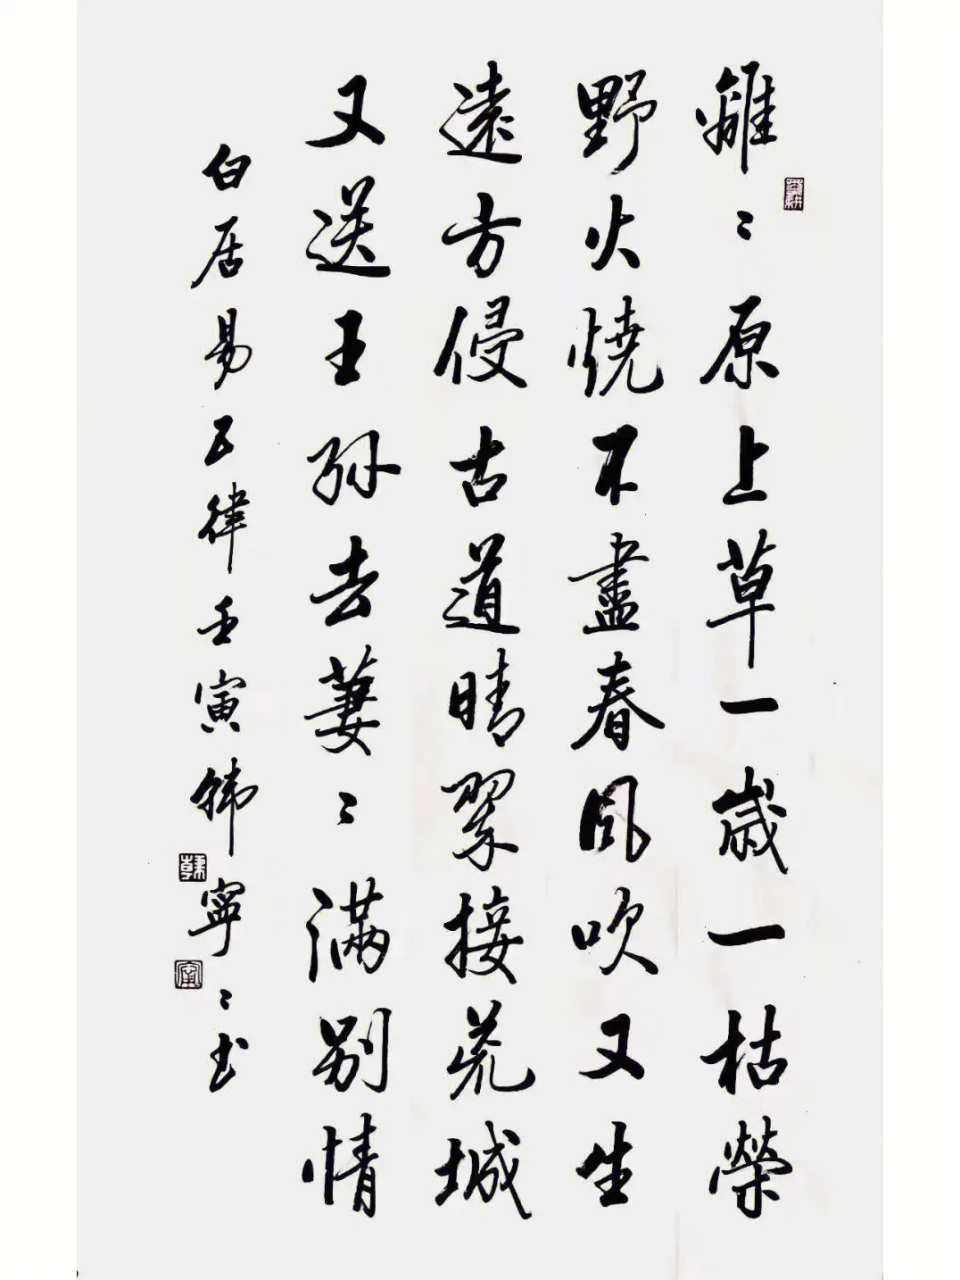 離〻原上草一歲一枯榮
野火燒不盡春風吹又生
遠方侵古道晴翠接荒城
又送王孫去萋〻滿別情
白居易五律壬寅韓寧〻书
韓